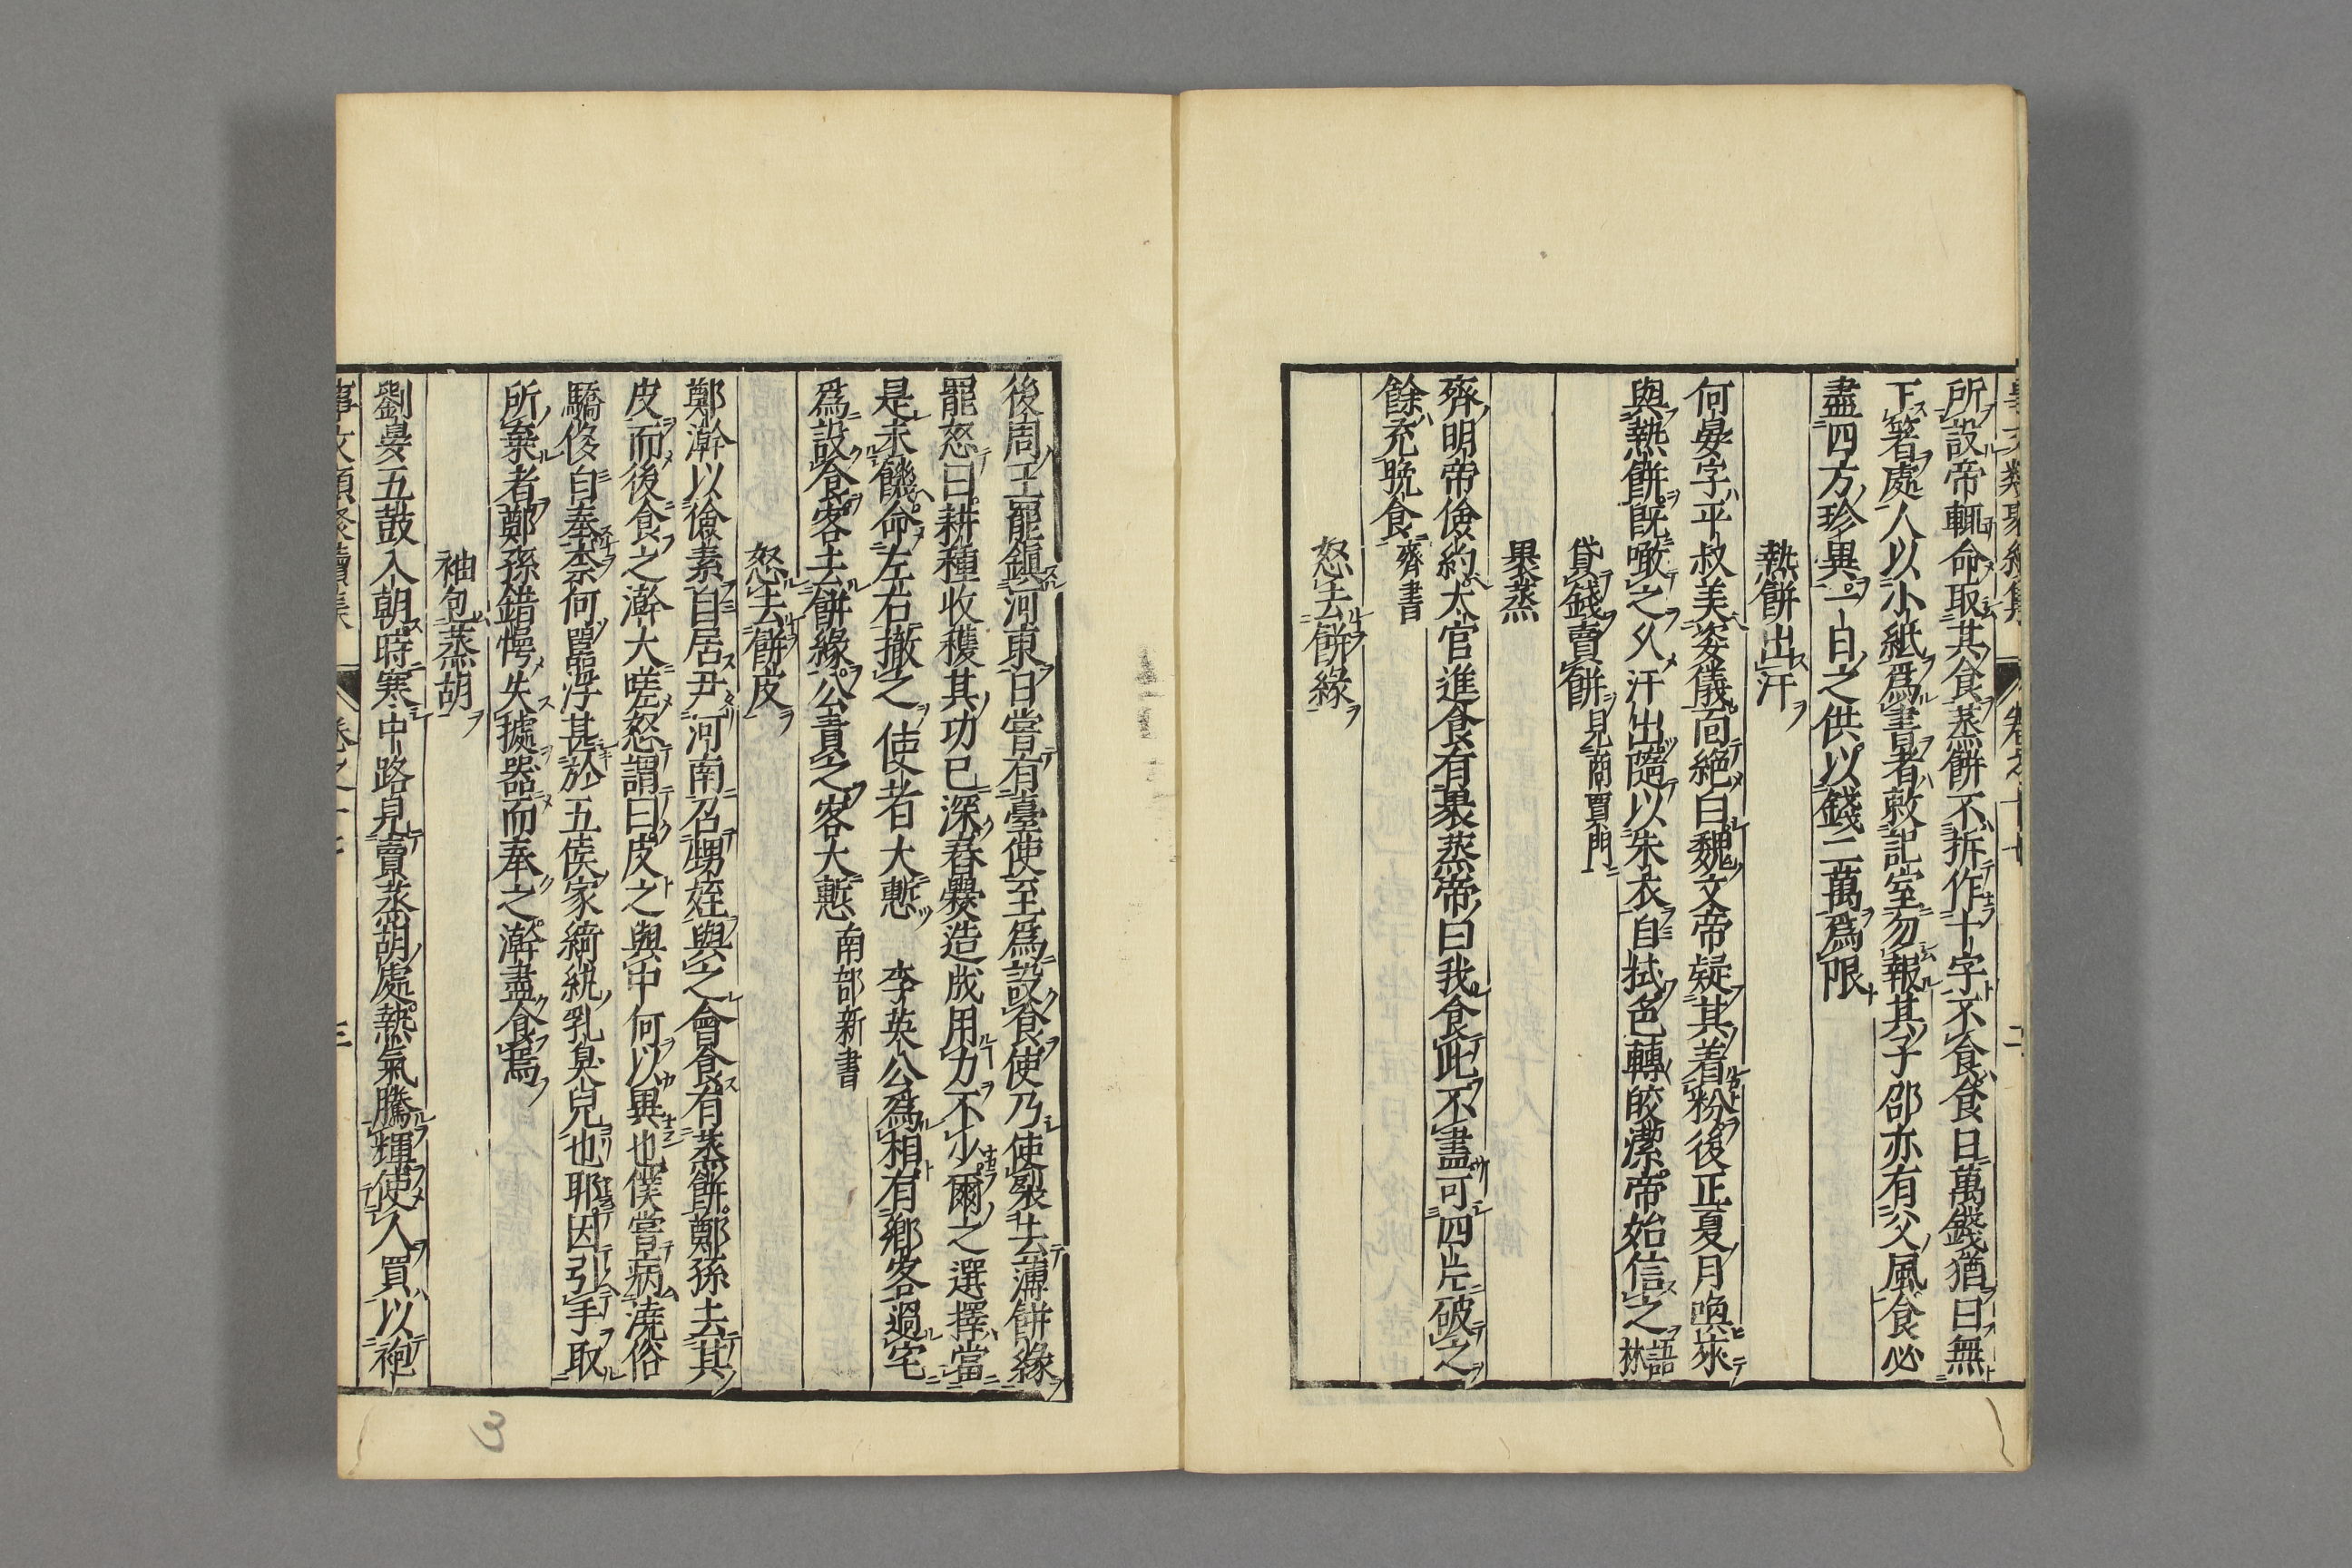 所設帝輒命取其食蒸餅不拆作十字不食食日萬錢猶曰無
下箸處人以小紙爲書者敕記室勿報其子邵亦有父風食必
盡四方珍異一日之供以錢二萬爲限
熱餅出汗
何晏字平叔美姿儀面絶白魏文帝疑其着粉後正夏月喚來
與熱餅既噉之大汗出隨以朱衣自拭色轉皎潔帝始信之語林
貸錢賣餅見商賈門
果蒸
齊明帝儉約太官進食有裹蒸帝曰我食此不盡可四片破之
餘充晩食齊書
怒去餅緣
後周王羆鎭河東日嘗有臺使至爲設食使乃使裂去薄餅緣
羆怒曰耕種收穫其功已深舂爨造成用力不少爾之選擇當
是未饑命左右撤之使者大慙　李英公爲相有鄕客過宅
爲設食客去餅緣公責之客大慙南部新書
怒去餅皮
鄭澣以儉素自居尹河南召甥姪與之會食有蒸餅鄭孫去其
皮而後食之澣大嗟怒謂曰皮之與中何以異也僕嘗病澆俗
驕侈自奉奈何囂浮甚於五侯家綺紈乳臭兒也耶因引手取
所棄者鄭孫錯愕失據器而奉之澣盡食焉
袖包蒸胡
劉晏五鼓入朝時寒中路見賣蒸胡處熱氣騰輝使人買以袍
事文類聚續集　卷之十七　三